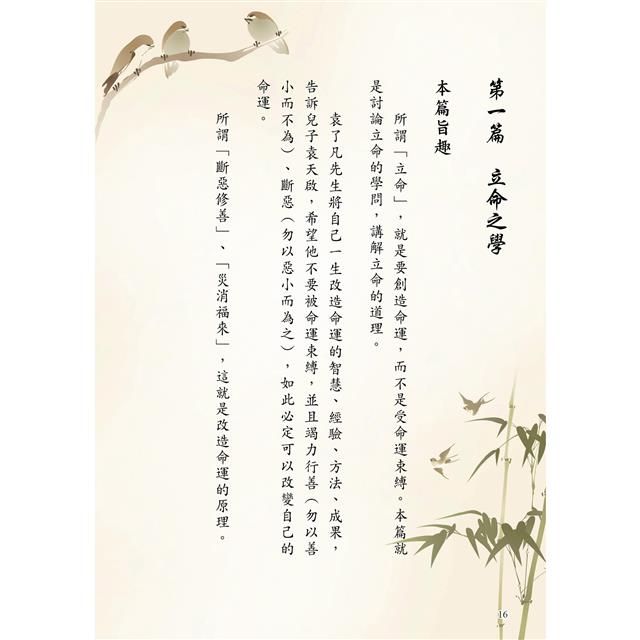 第一篇　立命之學
本篇旨趣
所謂「立命」，就是要創造命運，而不是受命運束縛。本篇就
是討論立命的學問，講解立命的道理。
袁了凡先生將自己一生改造命運的智慧、經驗、方法、成果，
告訴兒子袁天啟，希望他不要被命運束縛，並且竭力行善（勿以善
小而不為）、斷惡（勿以惡小而為之），如此必定可以改變自己的
命運。
所謂「斷惡修善」、「災消福來」，這就是改造命運的原理。
16